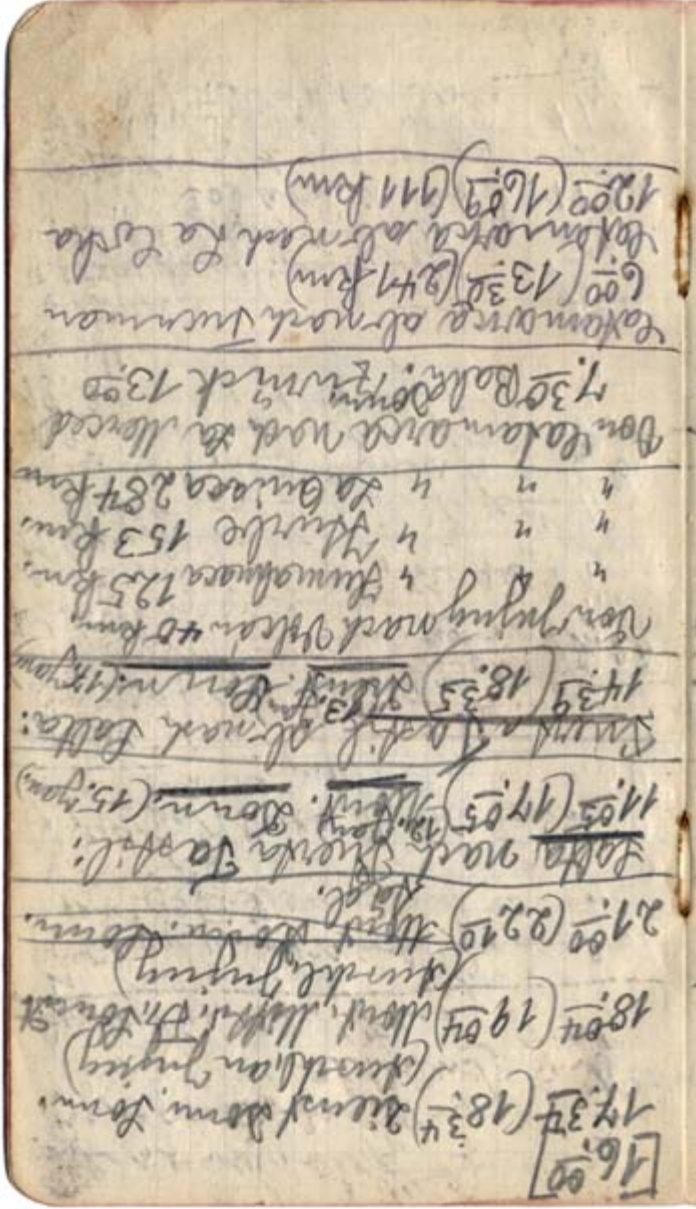 [16.00]
17.34 (18.34) Dienst. Donn. Sonn.
(durch an Jujuy)
18.04 (19.04) Mont. Mittw. Fr. Sonnt
(durchl. Jujuy)
21.00 (22.10) Mont. Donn. Sonn.
tägl.
Salta nach Puerta Tastil:
11.05 (17.05) Mont. (12. Jan) Donn. (15. Jan.)
Puerta Tastil ab nach Salta:
14.39 (18.35) Dienst. (13. Jan) Sonn. (17. Jan)
Von Jujuy nach Volcán 40 km.
" " " Humahuaca 125 km.
" " " Iturbe 153 km.
" " " La Quiaca 284 km
Von Catamarca nach La Merced
7.30 Bahn. Donn. zurück 13.00
Catamarca ab nach Tucuman
6.00 (13.30) (241 km)
Catamarca ab nach La Cocha
12.00 (16.09) (111 km)